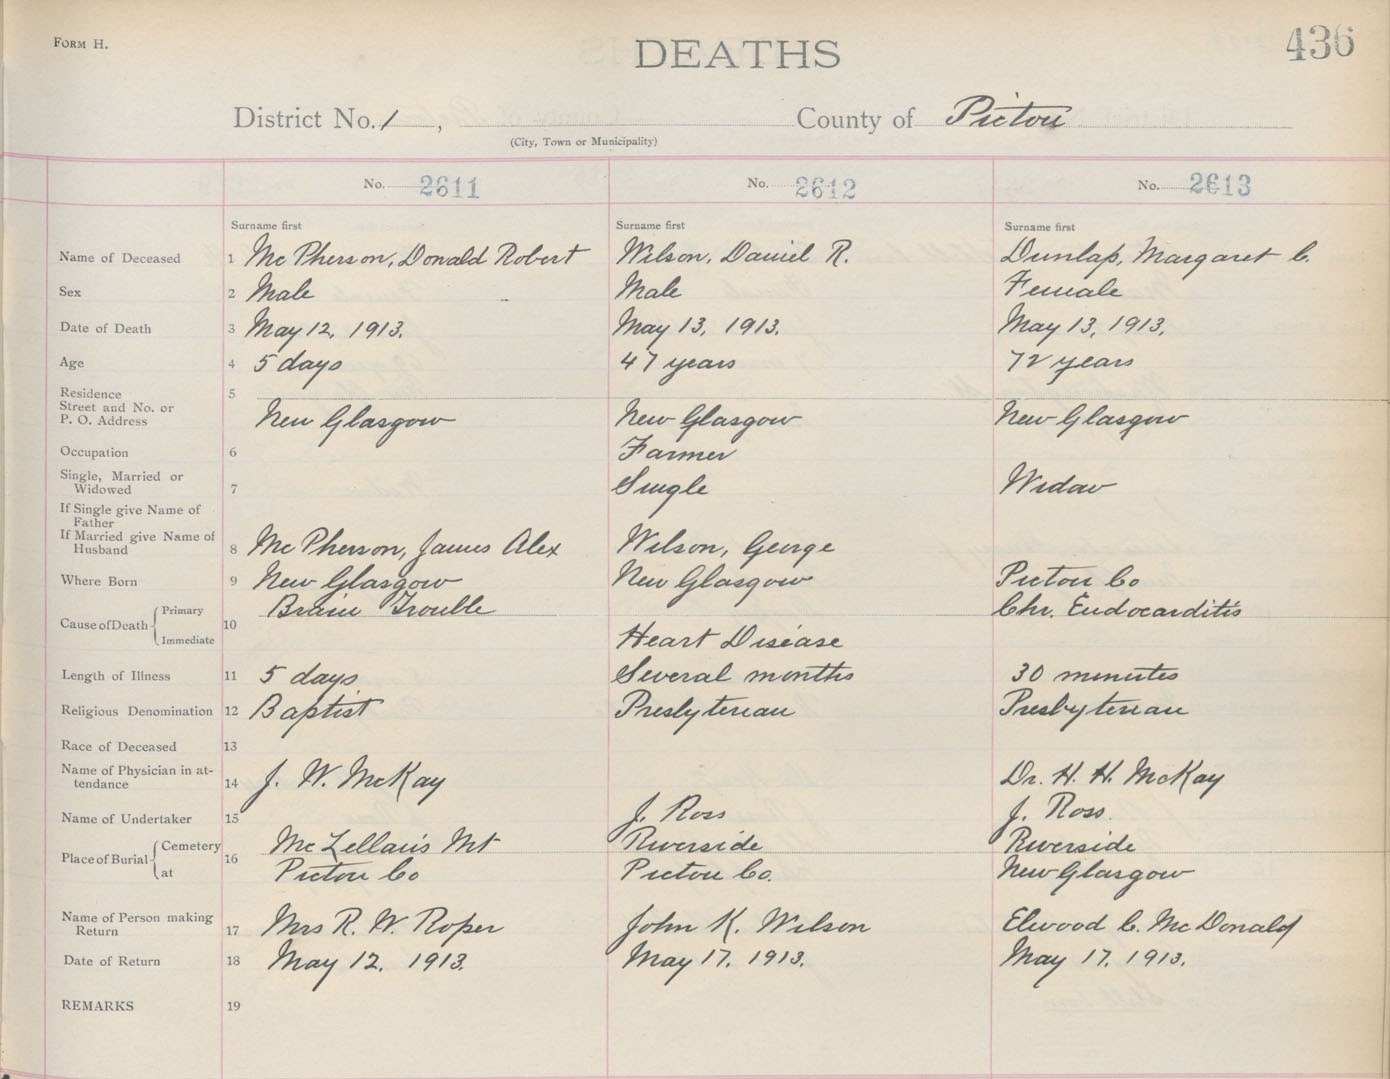 FORM H.
DEATHS
436
District No. 1, County of Pictou
(City, Town or Municipality)
No. 2611 No. 2612 No. 2613
Surname first Surname first Surname first
Name of Deceased 1 McPherson, Donald Robert Wilson, Daniel R. Dunlap, Margaret C.
Sex 2 Male Male Female
Date of Death 3 May 12, 1913. May 13, 1913. May 13, 1913.
Age 4 5 days 47 years 72 years
Residence 5
Street and No. or
P. O. Address New Glasgow New Glasgow New Glasgow
Occupation 6 Farmer
Single, Married or
Widowed 7 Single Widow
If Single give Name of
Father
If Married give Name of
Husband 8 McPherson, James Alex Wilson, George
Where Born 9 New Glasgow New Glasgow Pictou Co
Cause of Death 10 Primary Brain Trouble Chr. Endocarditis
Immediate Heart Disease
Length of Illness 11 5 days Several months 30 minutes
Religious Denomination 12 Baptist Presbyterian Presbyterian
Race of Deceased 13
Name of Physician in at-
tendance 14 J. W. McKay Dr. H. H. McKay
Name of Undertaker 15 J. Ross J. Ross.
Place of Burial 16 Cemetery McLellan's Mt Riverside Riverside
at Pictou Co Pictou Co. New Glasgow
Name of Person making
Return 17 Mrs R. W. Roper John K. Wilson Elwood C. McDonald
Date of Return 18 May 12, 1913. May 17, 1913. May 17, 1913.
REMARKS 19